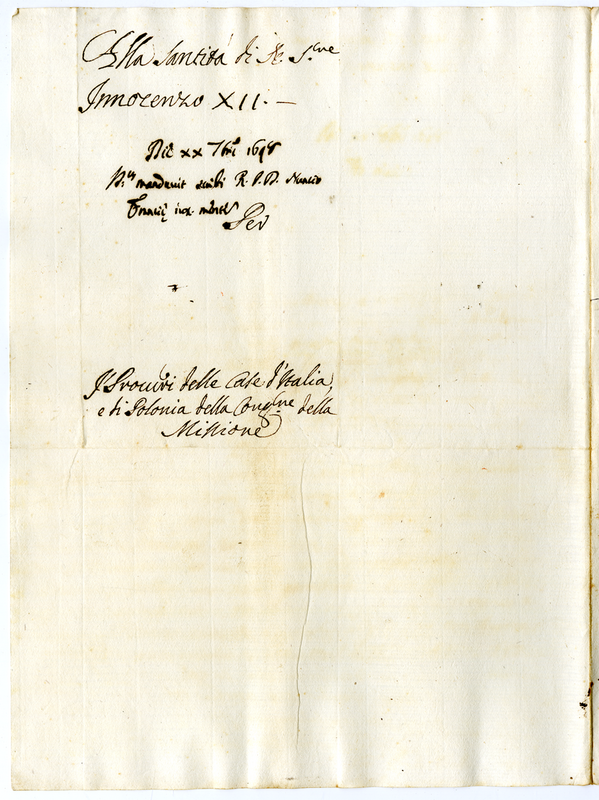 Alla Santità di N. S.re
Innocenzo XII. —
Die xx 7bris 1697
SS.us mandavit scribi R. P. D. Nuncio
iux. mentem
I Procu.ri delle Case d'Italia,
e di Polonia della Cong.ne della
Missione